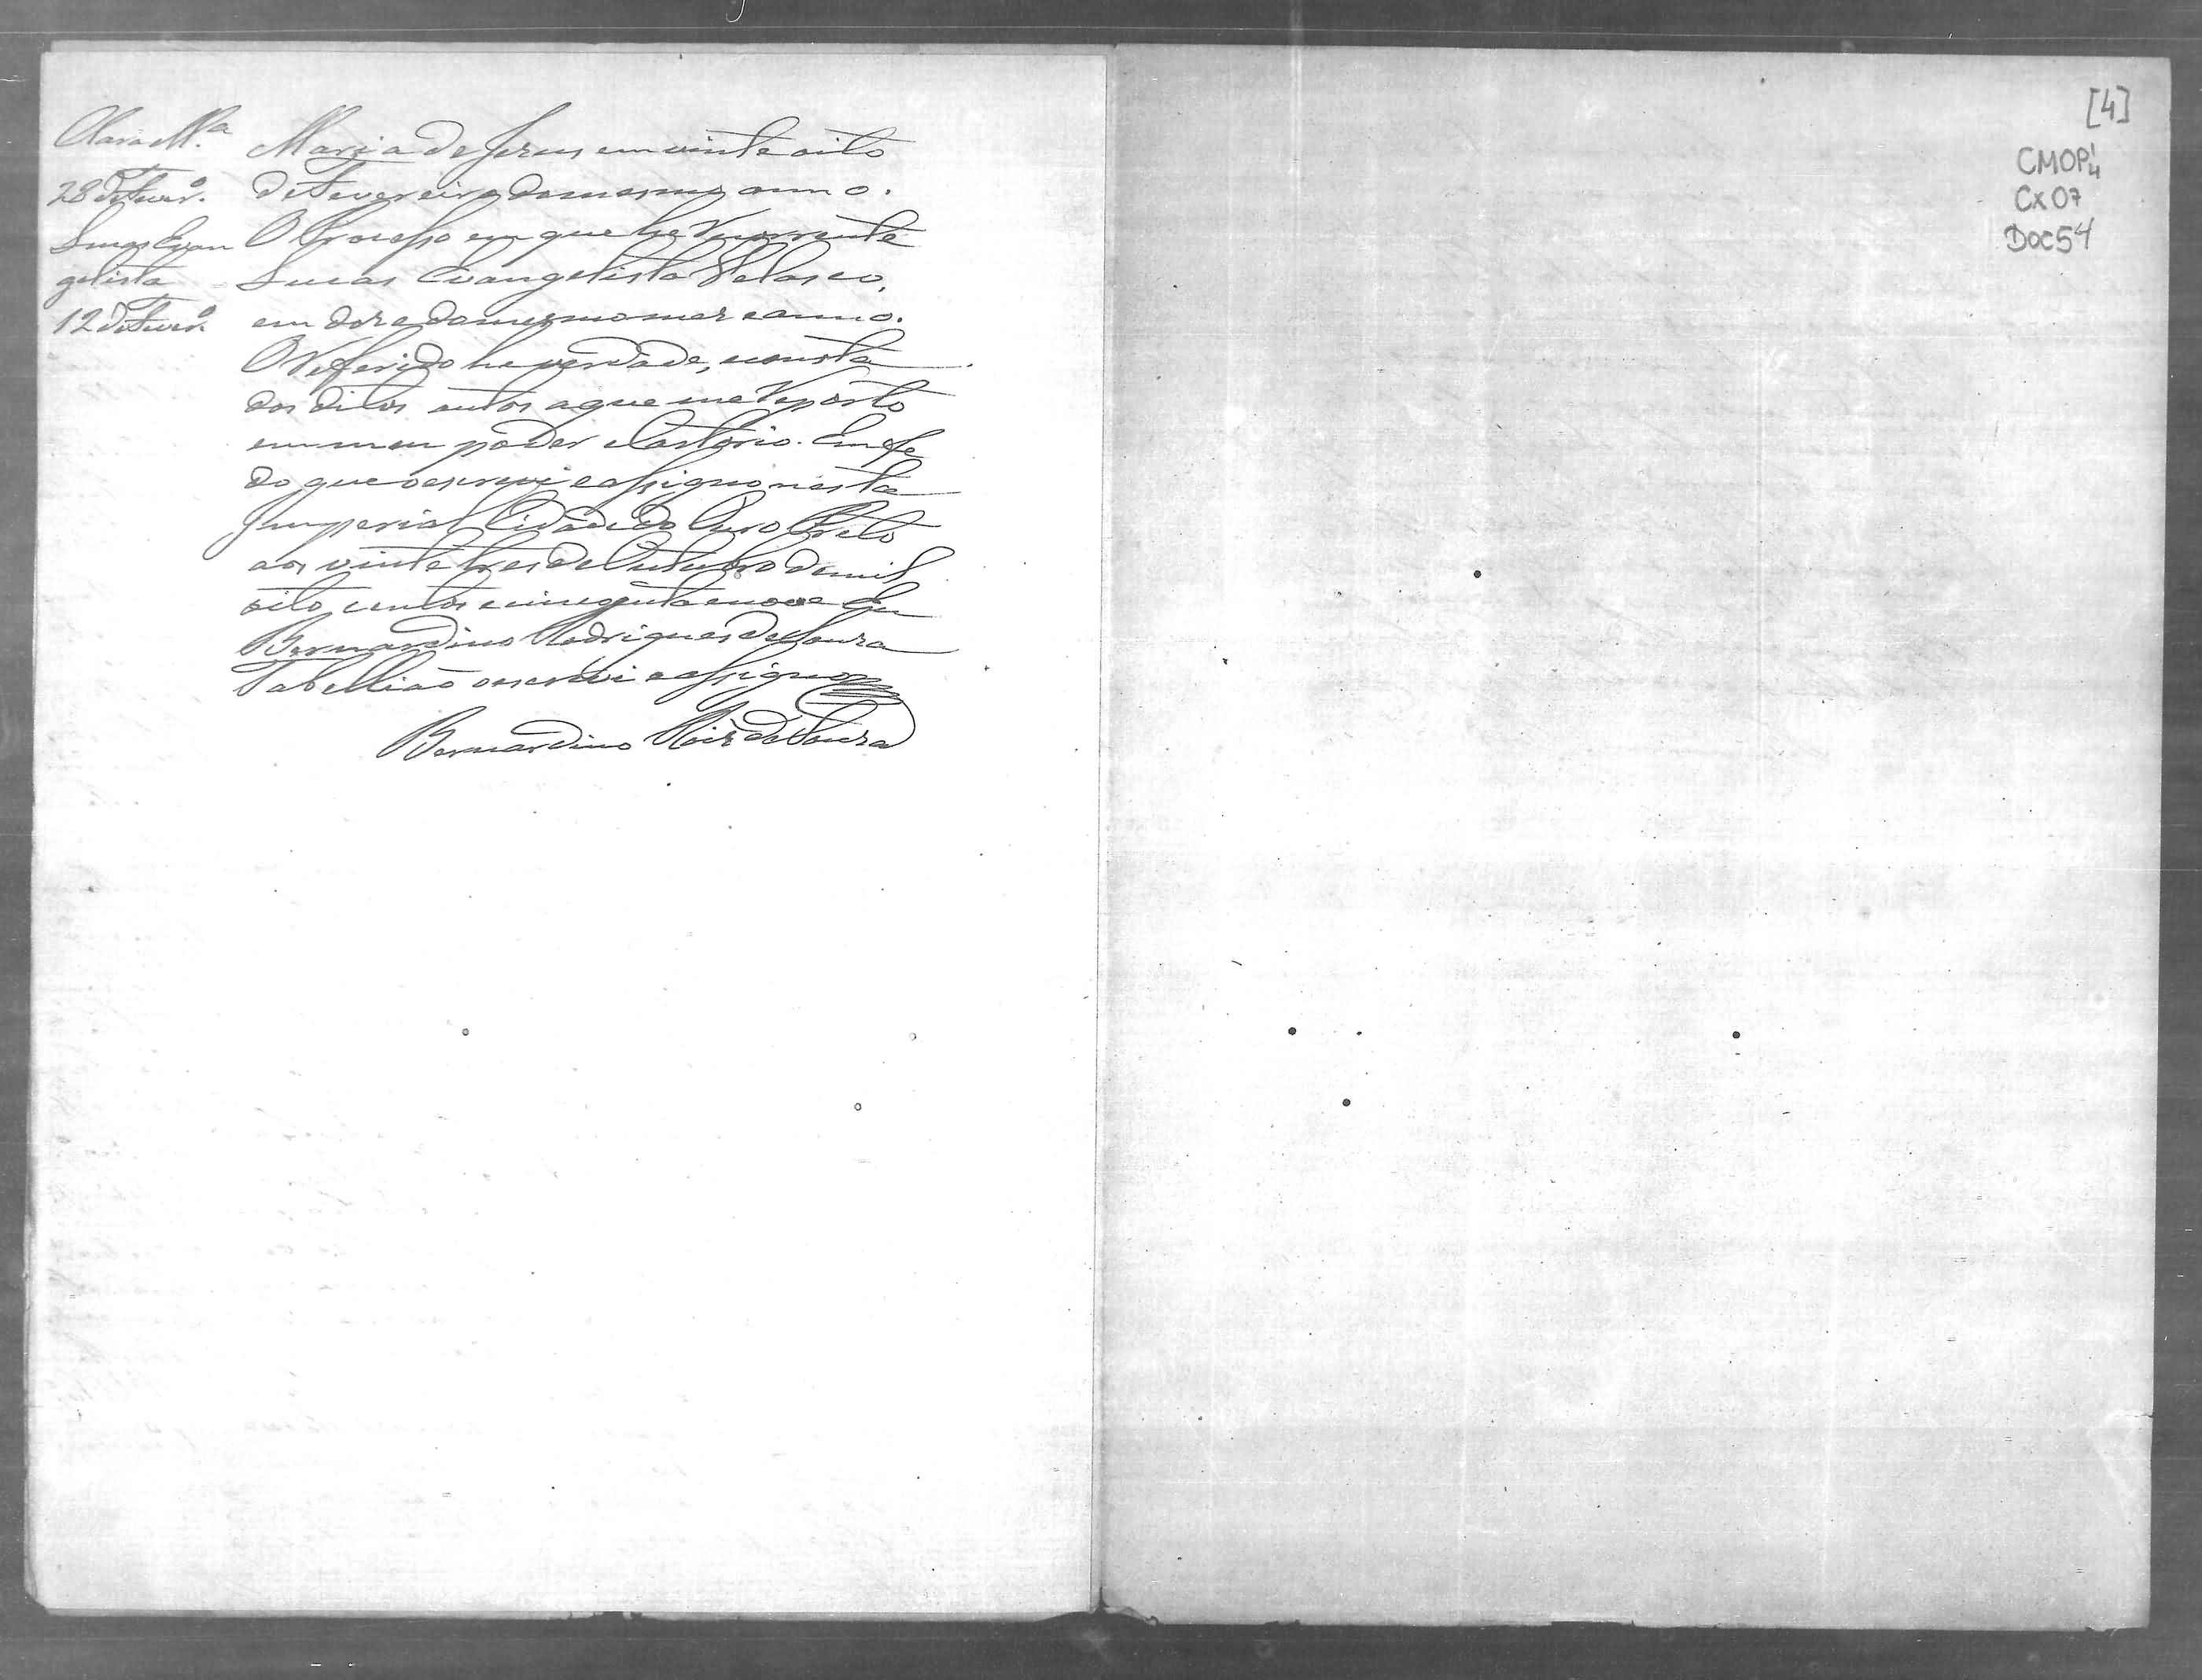 Clara M.ª
28 de Fever.º
Lucas Evan
gelista
12 de Fever.º
Maria de Jesus em vinte oito
de Fevereiro do mesmo anno.
O Processo em que he Recorrente
Lucas Evangelista Velasco,
em doze do mesmo mez e anno.
O Referido he verdade, e consta
dos ditos autos a que me Reporto
em meu poder e Cartorio. Em fe
do que o escrevi e assigno nesta
Imperial Cidade do Ouro Preto
aos vinte tres de Outubro de mil
oito centos e cincoenta e nove Eu
Bernardino Rodrigues de Souza
Tabellião o escrevi e assigno
Bernardino Roiz de Souza
[4]
CMOP 1/4
Cx 07
Doc 54